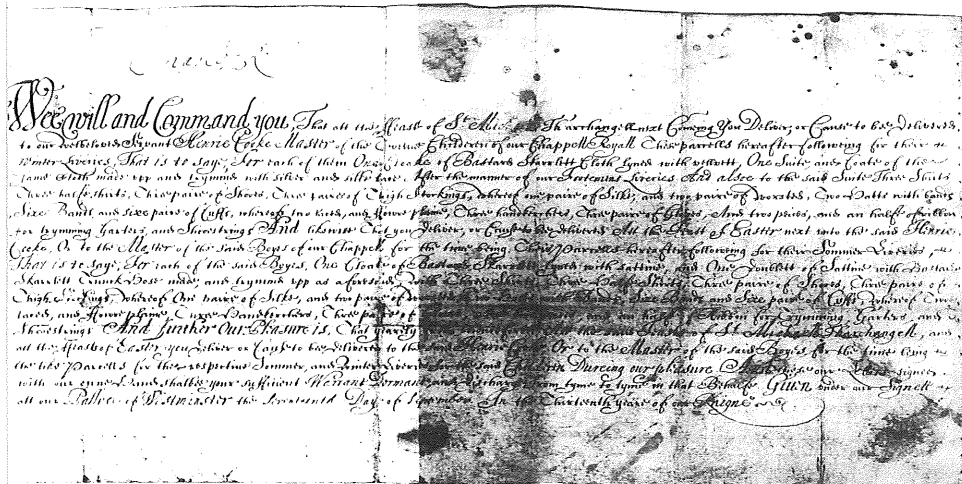 Charles R
Wee will and Command you, That att the Feast of St. Michaell Tharchangell next Coming You Deliver, or Cause to be delivered,
to our welbeloved Servant Henrie Cooke Master of the Twelve Children of our Chappell Royall Theis parcells hereafter following for their
Winter Liveries, That is to saye, For each of them One Cloake of Bastard Scarlett Cloth lyned with velvett, One Suite, and Coate of the
same Cloth made upp and trymmed with silver and silke lace, After the manner of our Footemens Liveries And alsoe to the said Suite Three Shirts
Three halfe shirts, Three paire of Shoes, Three paire of Thigh Stockings, whereof one paire of Silke, and two paire of Worsted, Two Hatts with bands
Sixe Bands, and sixe paire of Cuffs, whereof two laced, and fowre plaine, Three handkerchers, Three paire of Gloves, And two peices, and an halfe of ribbon
for trymming Garters, and Shoestrings And likewise That you Deliver, or Cause to be delivered Att the Feast of Easter next unto the said Henrie
Cooke, Or to the Master of the said Boyes of our Chappell for the time being Theis Parcells hereafter following for their Sommer Liveries,
That is to saye, For each of the said Boyes, One Cloake of Bastard Skarlett lyned with sattine, and One Doublett of Sattine with Bastard
Skarlett Trunk Hose made, and trymmed upp as aforesaid, with Three Shirts, Three halfe Shirts, Three paire of Shoes, Three paire of
Thigh Stockings, whereof One paire of Silke, and two paire of worsted, Two Hatts with Bands, Sixe Bands and Sixe paire of Cuffs whereof Two
laced, and Fowre plaine, Three Handkerchers, Three paire of Gloves and an halfe of Ribbon for trymming Garters, and
Shoestrings And further Our Pleasure is, That yearely att the said Feasts of St. Michaell Tharchangell, and
att the Feast of Easter you Deliver or Cause to be delivered to the said Henrie Cooke Or to the Master of the said Boyes for the time being
the like Parcells for the respective Sommer, and Winter Liveries for the said Children Dureing our pleasure And these our Letters signed
with our owne hand shalbe your sufficient Warrant Dormant, and Discharge from tyme to tyme in that Behalfe Given under our Signett
att our Pallace of Westminster the Seventeenth Day of September In the Thirteenth yeare of our Raigne